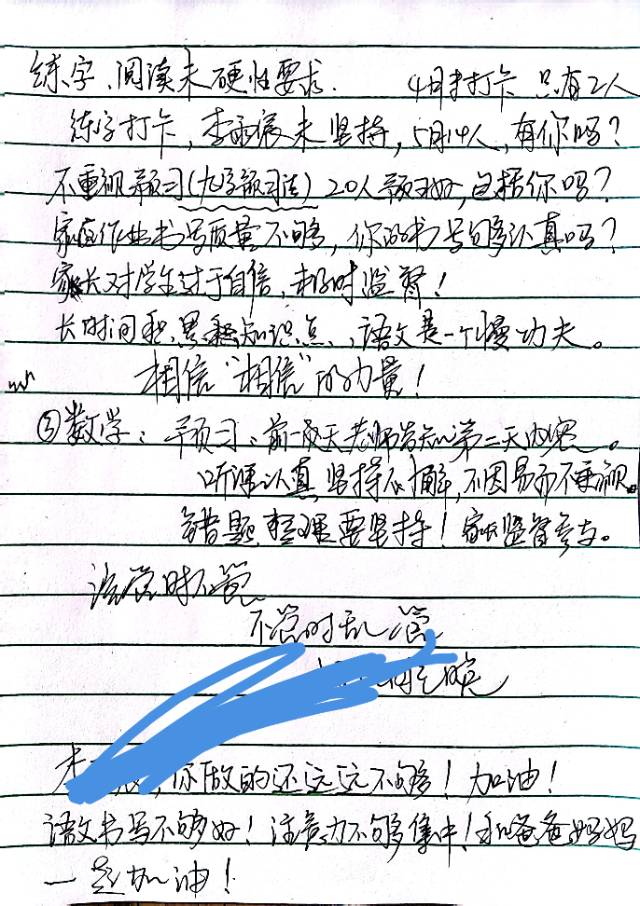 练字、阅读未硬性要求. 4月打卡 只有2人
练字打卡, 未坚持, 5月14人, 有你吗?
不重视预习(九字预习法) 20人预习好, 包括你吗?
家庭作业书写质量不够, 你的书写够认真吗?
家长对学生过于自信, 未及时监督!
长时间积累知识点、语文是一个慢功夫。
相信“相信”的力量!
③数学: 预习、前一天老师告知第二天内容。
听课认真, 坚持不懈, 不因易而不重视。
错题整理要坚持! 家长监督参与。
该管时不管
不管时乱管
你做的还远远不够! 加油!
语文书写不够好! 注意力不够集中! 和爸爸妈妈
一起加油!